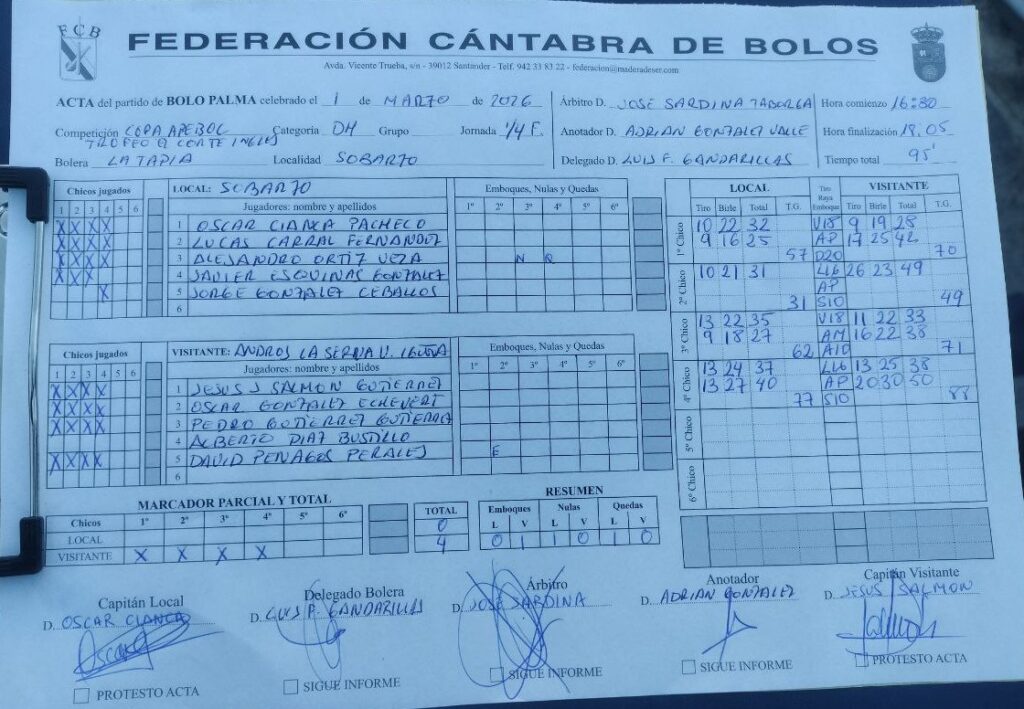 FCB
FEDERACIÓN CÁNTABRA DE BOLOS
Avda. Vicente Trueba, s/n - 39012 Santander - Telf. 942 33 83 22 - federacion@maderadeser.com
ACTA del partido de BOLO PALMA celebrado el 1 de MARZO de 2026 Árbitro D. JOSE SARDINA TABORGA Hora comienzo 16:30
Competición COPA APEBOL TROFEO EL CORTE INGLES Categoria DH Grupo Jornada 1/4 F. Anotador D. ADRIAN GONZALEZ VALLE Hora finalización 18.05
Bolera LA TAPIA Localidad SOBARZO Delegado D. LUIS F. GANDARILLAS Tiempo total 95'
Chicos jugados LOCAL: SOBARZO Emboques, Nulas y Quedas
1 2 3 4 5 6 Jugadores: nombre y apellidos 1º 2º 3º 4º 5º 6º
X X X X 1 OSCAR CIANCA PACHECO
X X X X 2 LUCAS CARRAL FERNANDEZ
X X X X 3 ALEJANDRO ORTIZ VEZA N Q
X X X 4 JAVIER ESQUINAS GONZALEZ
X 5 JORGE GONZALEZ CEBALLOS
6
Chicos jugados VISITANTE: ANDROS LA SERNA Emboques, Nulas y Quedas
1 2 3 4 5 6 Jugadores: nombre y apellidos 1º 2º 3º 4º 5º 6º
X X X X 1 JESUS J SALMON GUTIERREZ
X X X X 2 OSCAR GONZALEZ ECHEVERT
X X X X 3 PEDRO GUTIERREZ GUTIERREZ
4 ALBERTO DIAZ BUSTILLO
X X X X 5 DAVID PENAGOS PERALES E
6
LOCAL Tiro Raya Emboque VISITANTE
Tiro Birle Total T.G. Tiro Birle Total T.G.
1º Chico 10 22 32 V18 9 19 28
9 16 25 AP 17 25 42
57 D20 70
2º Chico 10 21 31 L16 26 23 49
AP
31 S10 49
3º Chico 13 22 35 V18 11 22 33
9 18 27 AM 16 22 38
62 A10 71
4º Chico 13 24 37 L16 13 25 38
13 27 40 AP 20 30 50
77 S10 88
5º Chico
6º Chico
MARCADOR PARCIAL Y TOTAL
Chicos 1º 2º 3º 4º 5º 6º TOTAL
LOCAL 0
VISITANTE X X X X 4
RESUMEN
Emboques Nulas Quedas
L V L V L V
0 1 1 0 1 0
Capitán Local Delegado Bolera Árbitro Anotador Capitán Visitante
D. OSCAR CIANCA D. LUIS F. GANDARILLAS D. JOSE SARDINA D. ADRIAN GONZALEZ D. JESUS SALMON
PROTESTO ACTA SIGUE INFORME SIGUE INFORME SIGUE INFORME PROTESTO ACTA